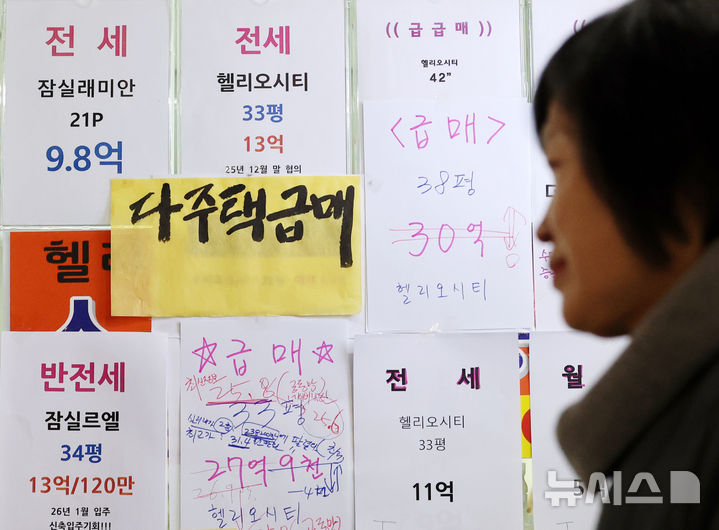 전 세
잠실래미안
21P
9.8억
전세
헬리오시티
33평
13억
25년 12월 말 협의
(( 급급매 ))
헬리오시티
42"
<급 매>
38평
30억
헬리오시티
다주택급매
헬리
반전세
잠실르엘
34평
13억/120만
26년 1월 입주
신축입주기회!!!
☆급 매☆
33평
27억 9천
헬리오시티
전 세
헬리오시티
33평
11억
월
뉴시스